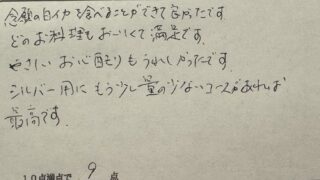 念願の白イカを食べることができて良かったです。
どのお料理もおいしくて満足です。
やさしいお心配りもうれしかったです。
シルバー用にもう少し量の少ないコースがあれば
最高です。
10点満点で 9 点